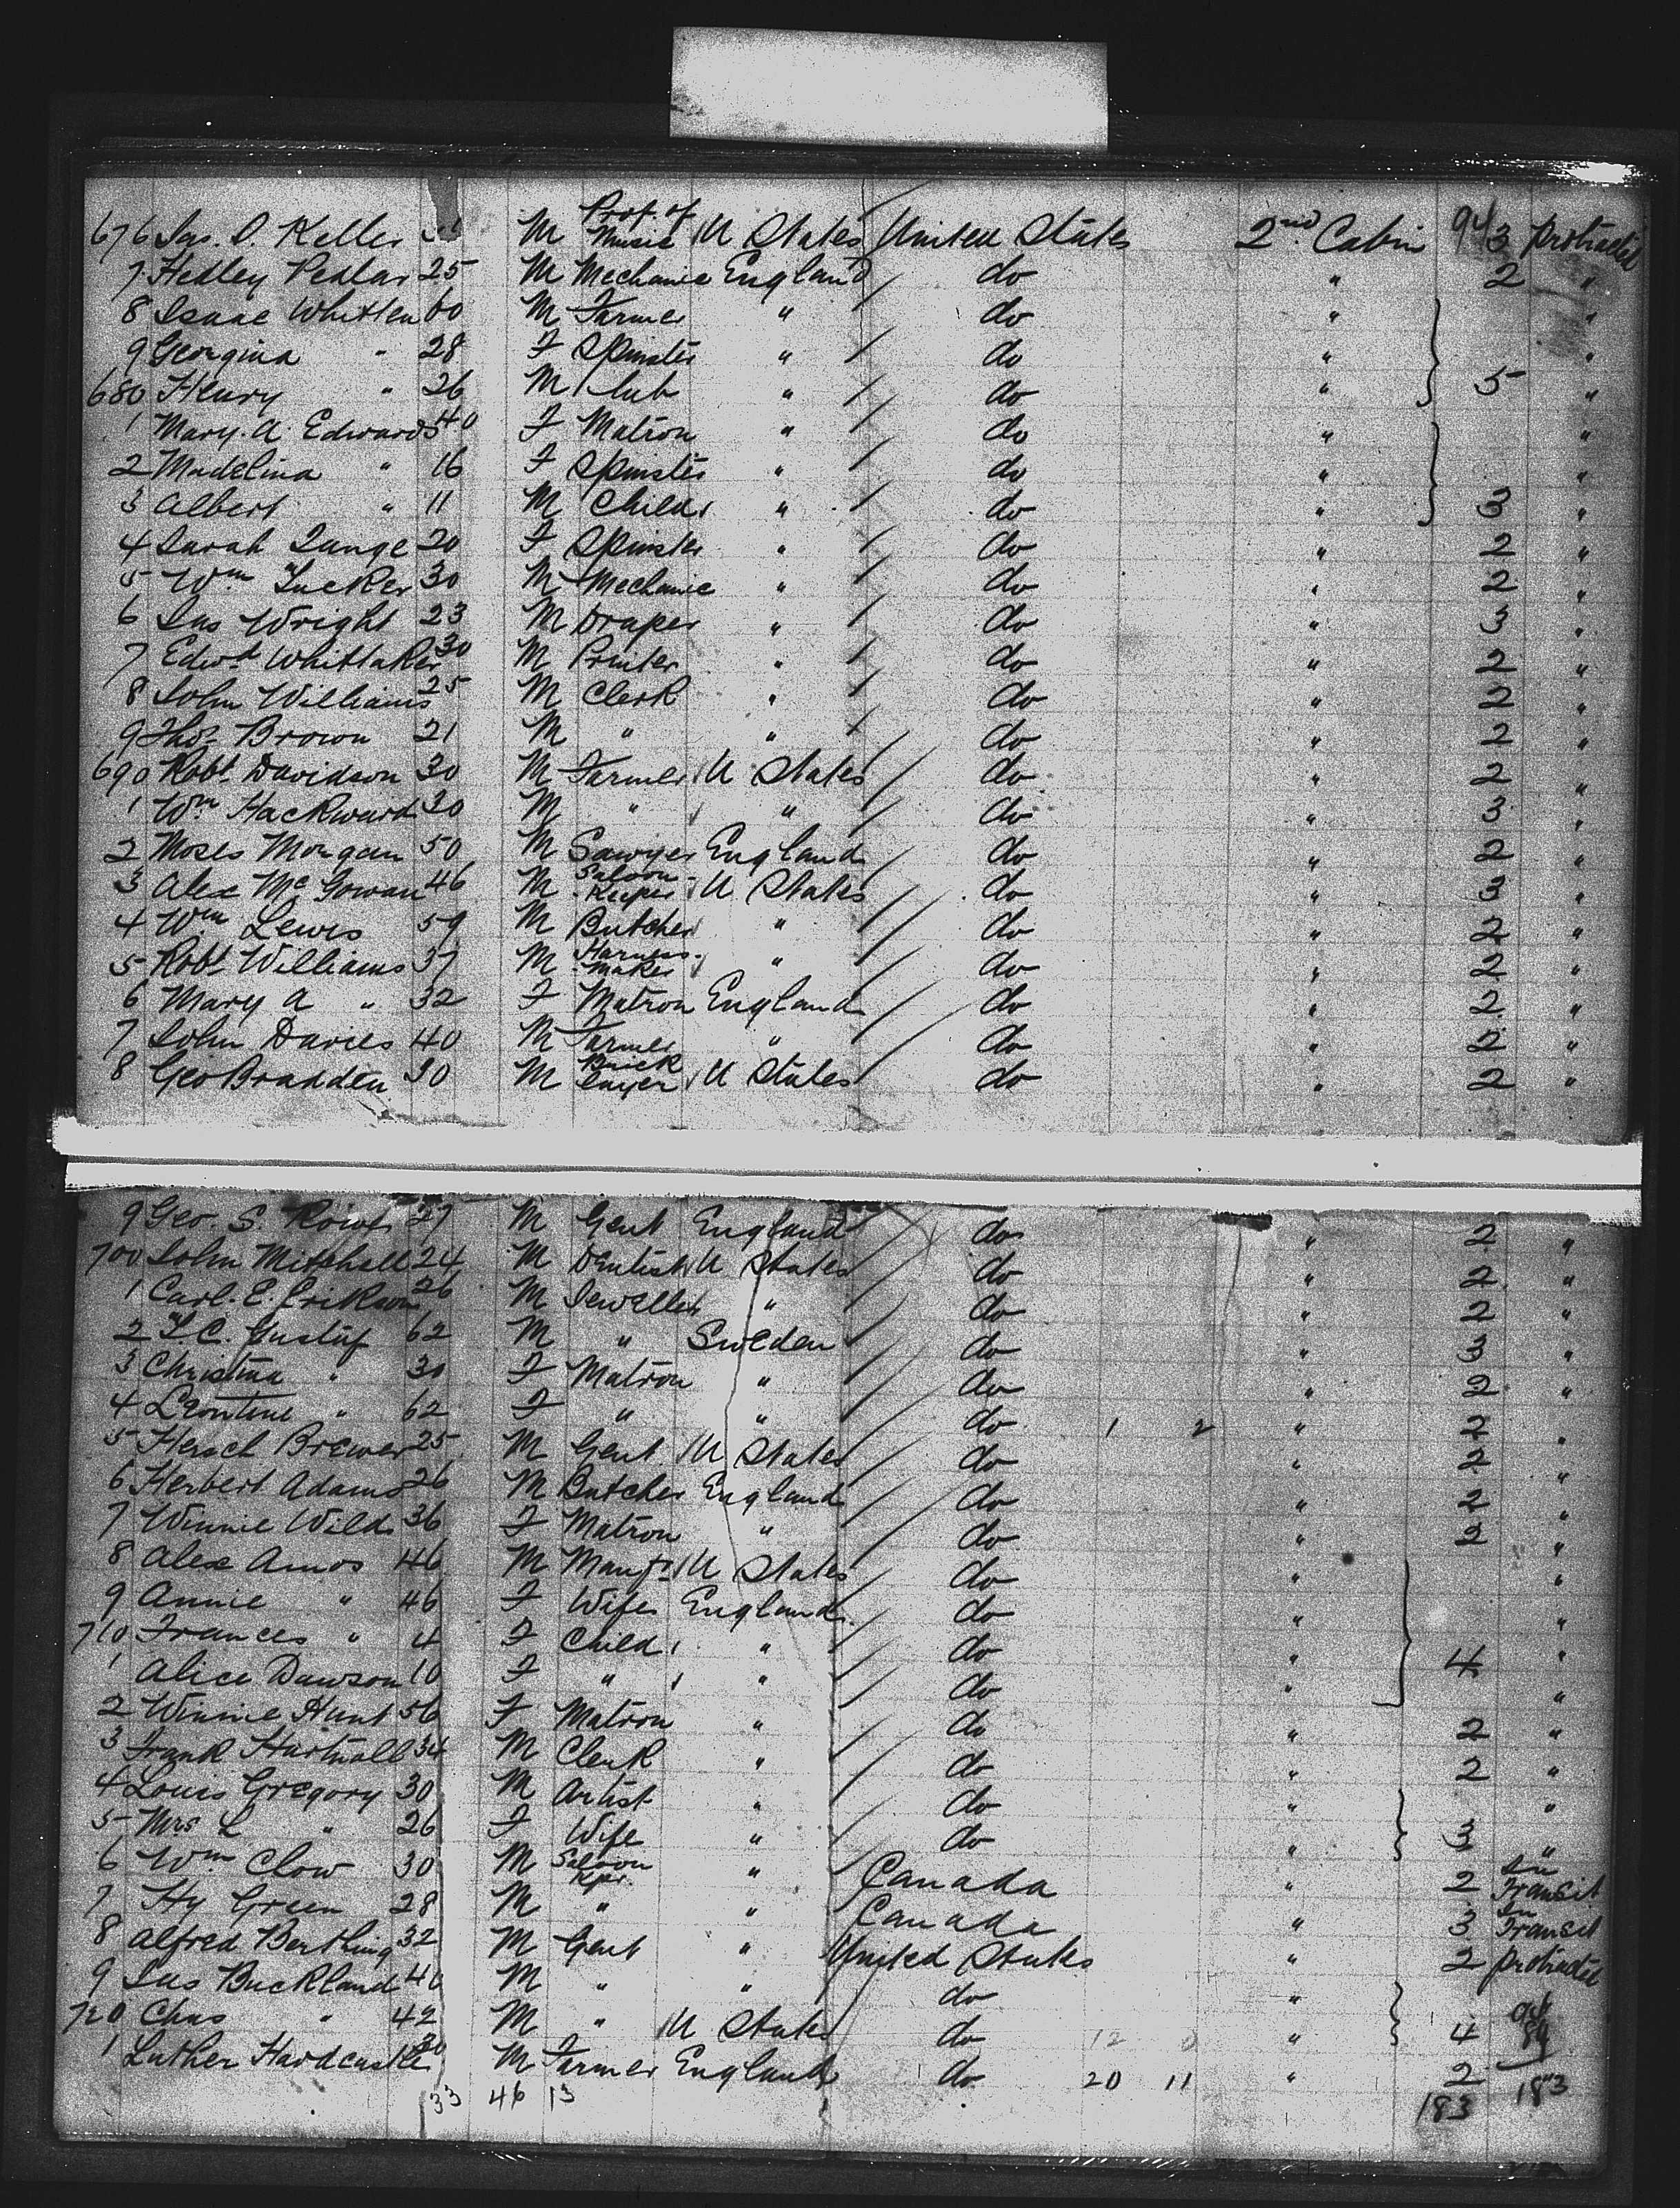 676 Jas. D. Keller M Prof. of Music U States United States 2nd Cabin 94 3 protracted
7 Hedley Pedlar 25 M Mechanic England do " 2 "
8 Isaac Whitten 60 M Farmer " do " "
9 Georgina " 28 F Spinster " do " "
680 Henry " 26 M Lab " do " 5 "
1 Mary. A. Edwards 40 F Matron " do " "
2 Madelina " 16 F Spinster " do " "
3 Albert " 11 M Child " do " 3 "
4 Sarah Lange 20 F Spinster " do " 2 "
5 Wm Tucker 30 M Mechanic " do " 2 "
6 Jas Wright 23 M Draper " do " 3 "
7 Edwd Whittaker 30 M Printer " do " 2 "
8 John Williams 25 M Clerk " do " 2 "
9 Thos Brown 21 M " " do " 2 "
690 Robt Davidson 30 M Farmer U States do " 2 "
1 Wm Hackward 30 M " " do " 3 "
2 Moses Morgan 50 M Sawyer England do " 2 "
3 Alex McGowan 46 M Saloon Keeper U States do " 3 "
4 Wm Lewis 59 M Butcher " do " 2 "
5 Robt Williams 37 M Harness Maker " do " 2 "
6 Mary A " 32 F Matron England do " 2 "
7 John Davies 40 M Farmer " do " 2 "
8 Geo Bradden 30 M Brick layer U States do " 2 "
9 Geo. S. Rower 27 M Gent England do " 2 "
700 John Mitchell 24 M Dentist U States do " 2 "
1 Carl. E. Erikson 26 M Jeweller " do " 2 "
2 L. C. Gustaf 62 M " Sweden do " 3 "
3 Christina " 30 F Matron " do " 2 "
4 Leontine " 62 F " " do 1 2 " 2 "
5 Brewer 25 M Gent. U States do " 2 "
6 Herbert Adams 26 M Butcher England do " 2 "
7 Winnie Wild 36 F Matron " do " 2 "
8 Alex Amos 46 M Manfr U States do " "
9 Annie " 46 F Wife England do " "
710 Frances " 4 F Child " do " 4 "
1 Alice Dawson 10 F " " do " "
2 Winnie Hunt 56 F Matron " do " 2 "
3 Frank Hartnall 34 M Clerk " do " 2 "
4 Louis Gregory 30 M Artist " do " "
5 Mrs L " 26 F Wife " do " 3 "
6 Wm Clow 30 M Saloon Kpr " Canada " 2 In Transit
7 Hy Green 28 M " " Canada " 3 In Transit
8 Alfred Berthing 32 M Gent " United States " 2 protracted
9 Jas Buckland 40 M " " do "
720 Chas " 42 M " U States do 12 0 " 4 89
1 Luther Hardcastle 30 M Farmer England do 20 11 " 2
33 46 13 183 183